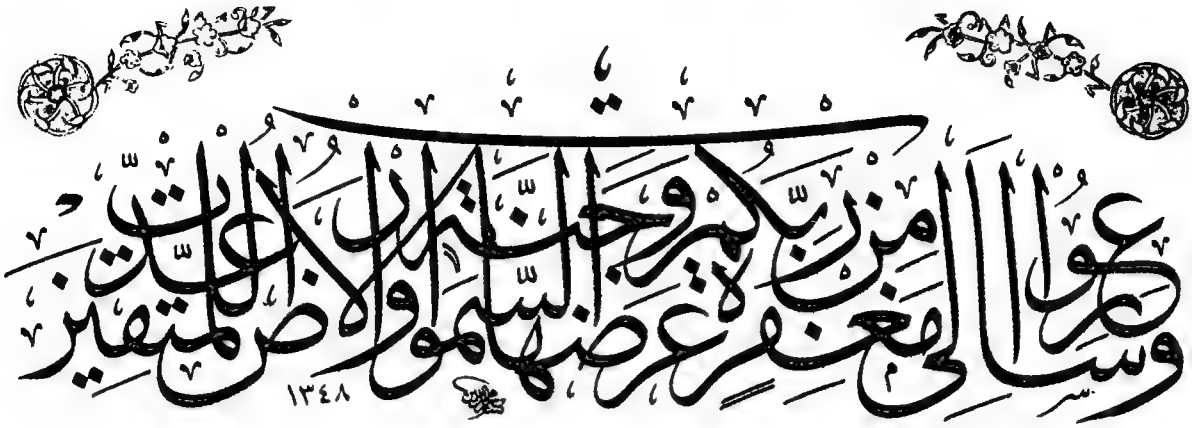 وَسَارِعُوا إِلَى مَغْفِرَةٍ مِنْ رَبِّكُمْ وَجَنَّةٍ عَرْضُهَا السَّمَوَاتُ وَالْأَرْضُ أُعِدَّتْ لِلْمُتَّقِينَ
١٣٤٨